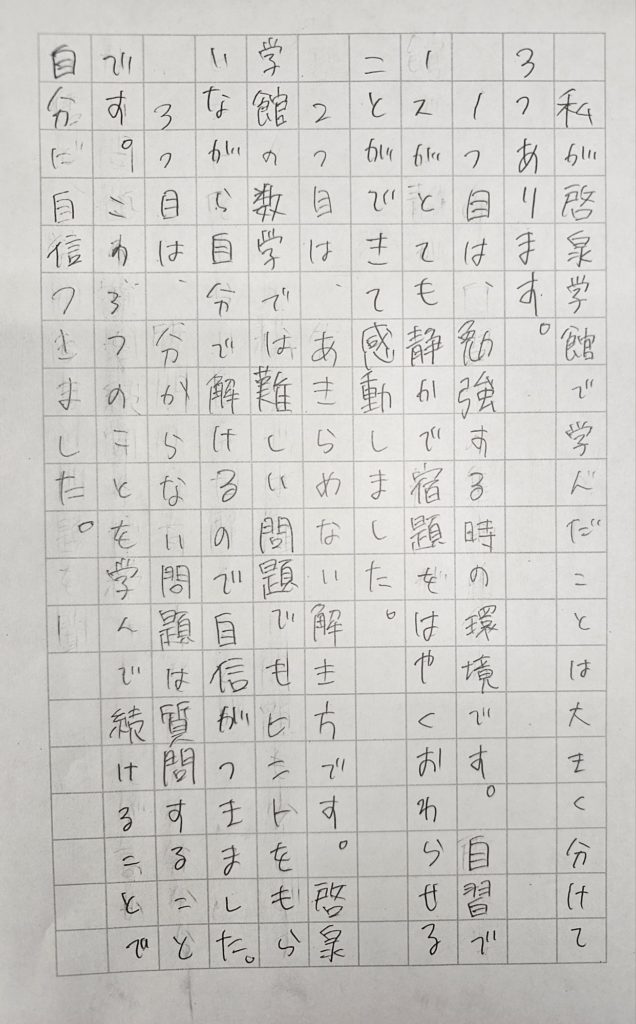 私が啓泉学館で学んだことは大きく分けて
3つあります。
1つ目は、勉強する時の環境です。自習ブ
ースがとても静かで宿題をはやくおわらせる
ことができて感動しました。
2つ目は、あきらめない解き方です。啓泉
学館の数学では難しい問題でもヒントをもら
いながら自分で解けるので自信がつきました。
3つ目は、分からない問題は質問すること
です。これ3つのことを学んで続けることで
自分に自信つきました。